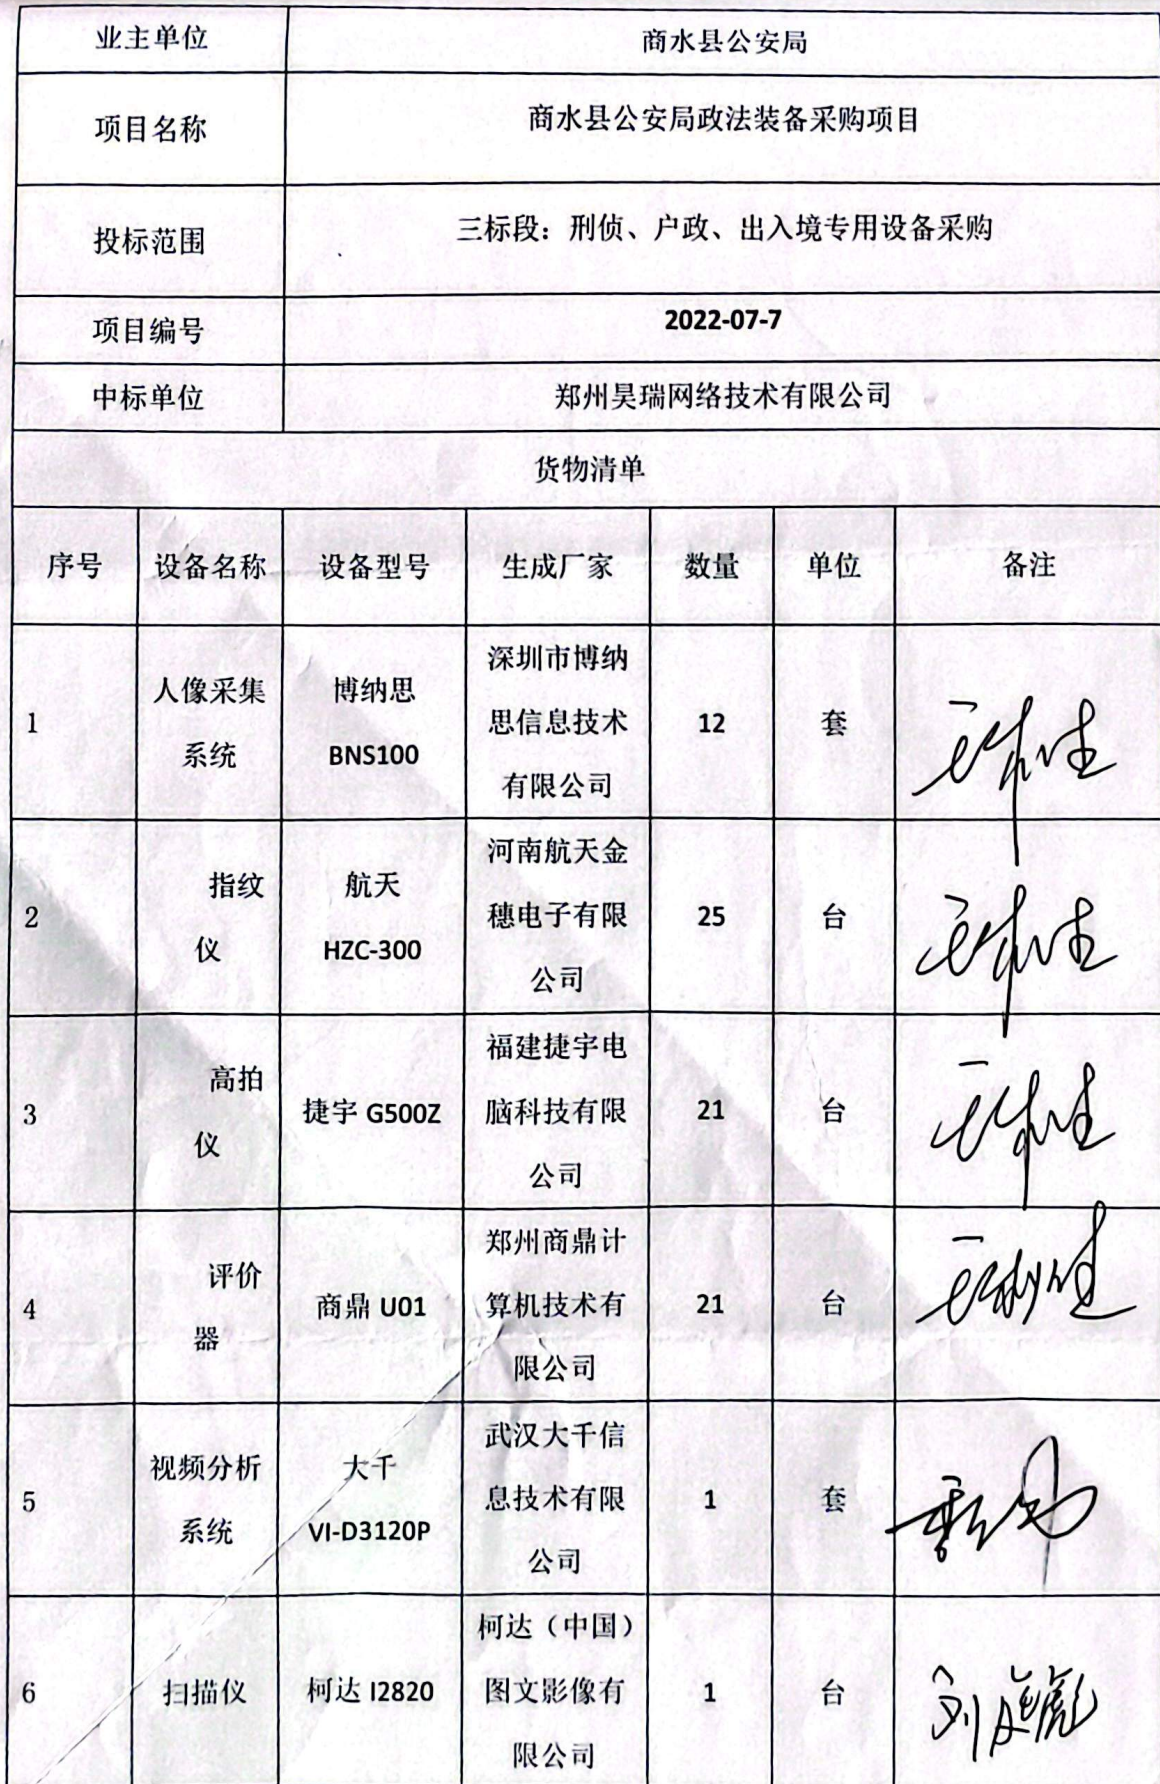 业主单位
商水县公安局
项目名称
商水县公安局政法装备采购项目
投标范围
三标段：刑侦、户政、出入境专用设备采购
项目编号
2022-07-7
中标单位
郑州昊瑞网络技术有限公司
货物清单
序号 设备名称 设备型号 生成厂家 数量 单位 备注
1
人像采集
系统
博纳思
BNS100
深圳市博纳
思信息技术
有限公司
12
套
2
指纹
仪
航天
HZC-300
河南航天金
穗电子有限
公司
25
台
3
高拍
仪
捷宇 G500Z
福建捷宇电
脑科技有限
公司
21
台
4
评价
器
商鼎 U01
郑州商鼎计
算机技术有
限公司
21
台
5
视频分析
系统
大千
VI-D3120P
武汉大千信
息技术有限
公司
1
套
6
扫描仪
柯达 I2820
柯达（中国）
图文影像有
限公司
1
台